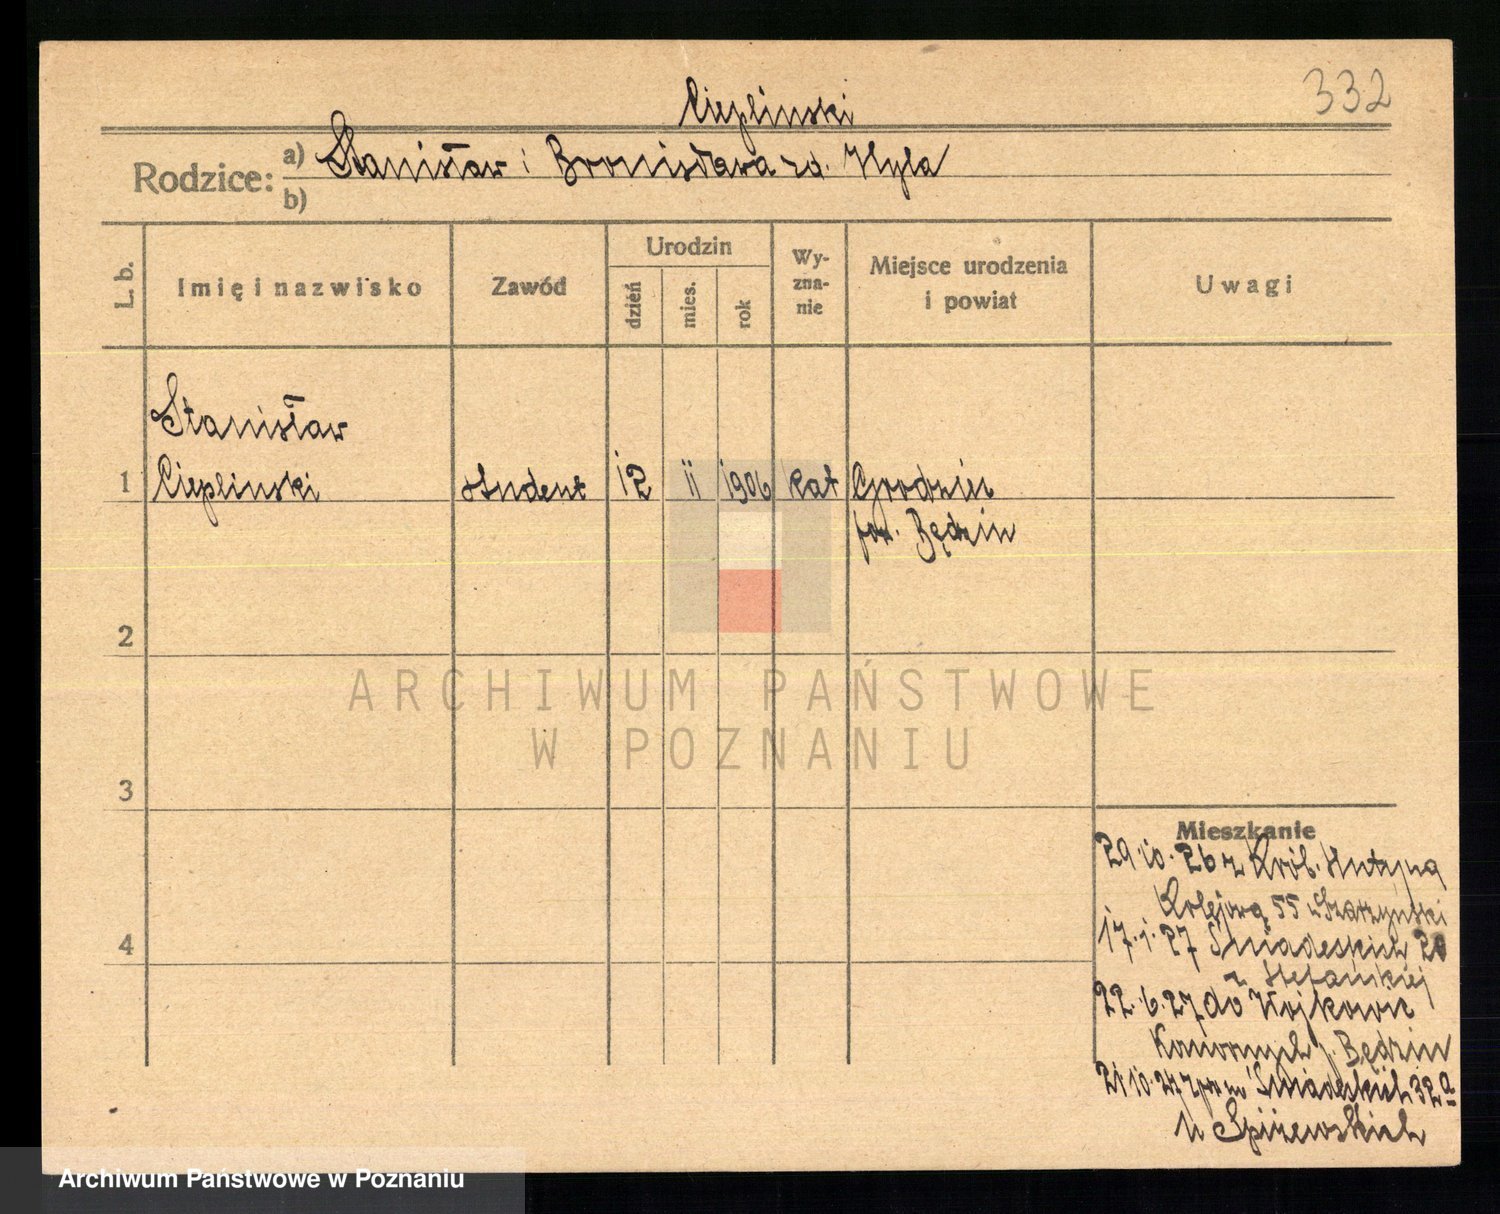 332
Cieplinski
Rodzice: a) Stanisław i Bronisława zd. Hyla
b)
L. b.
Imię i nazwisko
Zawód
Urodzin
dzień
mies.
rok
Wy-
zna-
nie
Miejsce urodzenia
i powiat
Uwagi
Stanisław
1 Cieplinski student 12 ii 1906 kat Grodziec
pow. Będzin
2
3
4
Mieszkanie
29.10.26 z Król. Huty na
Kolejową 55
17.1.27 Śniadeckich 20
22.6.27 do Wojkowic
Komornych p. Będzin
21.10.27 Śniadeckich 32a
u Spiżewskich
ARCHIWUM PAŃSTWOWE
W POZNANIU
Archiwum Państwowe w Poznaniu